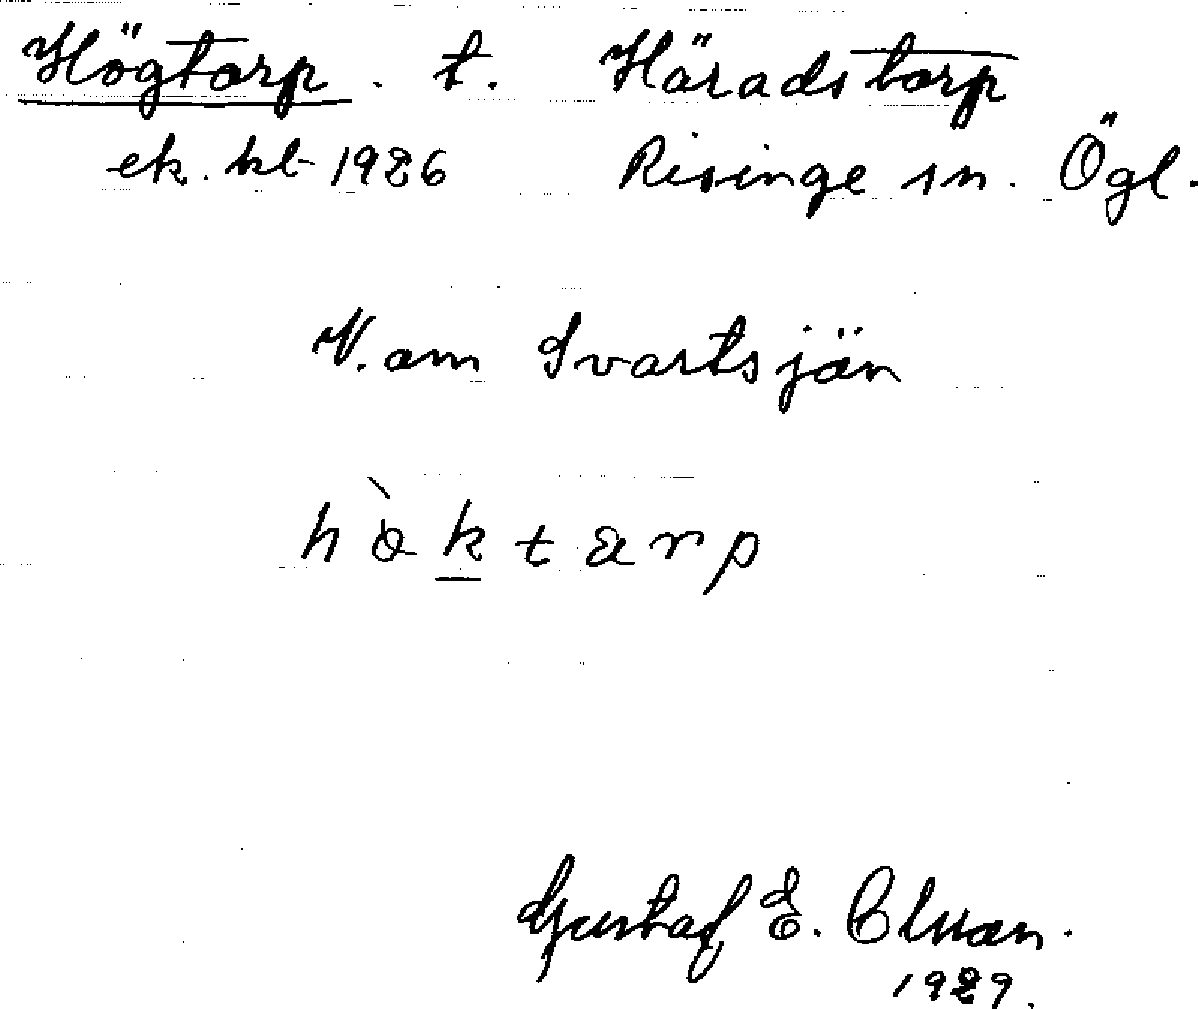 Högtorp . t. Häradstorp
ek. kbl 1926 Risinge sn. Ögl.
N. om Svartsjön
hòktarp
Gustaf E. Cluan.
1929.